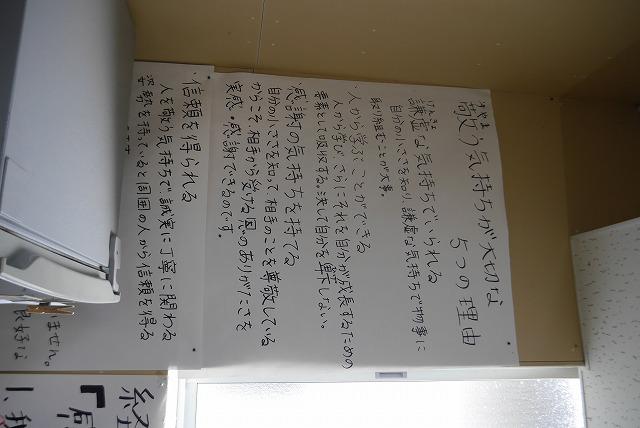 うやま
敬う気持ちが大切な
5つの理由
けんきょ
謙虚な気持ちでいられる
自分の小ささを知り、謙虚な気持ちで物事に
取り組むことが大事。
・人から学ぶことができる
人から学び、さらにそれを自分が成長するための
要素として吸収する。決して自分を卑下しない。
感謝の気持ちを持てる
自分の小ささを知って、相手のことを尊敬している
からこそ、相手から受ける恩のありがたさを
実感・感謝できるのです。
・信頼を得られる
人を敬う気持ちで誠実に丁寧に関わる
姿勢を持っていると周囲の人から信頼を得る
いません。
良好な